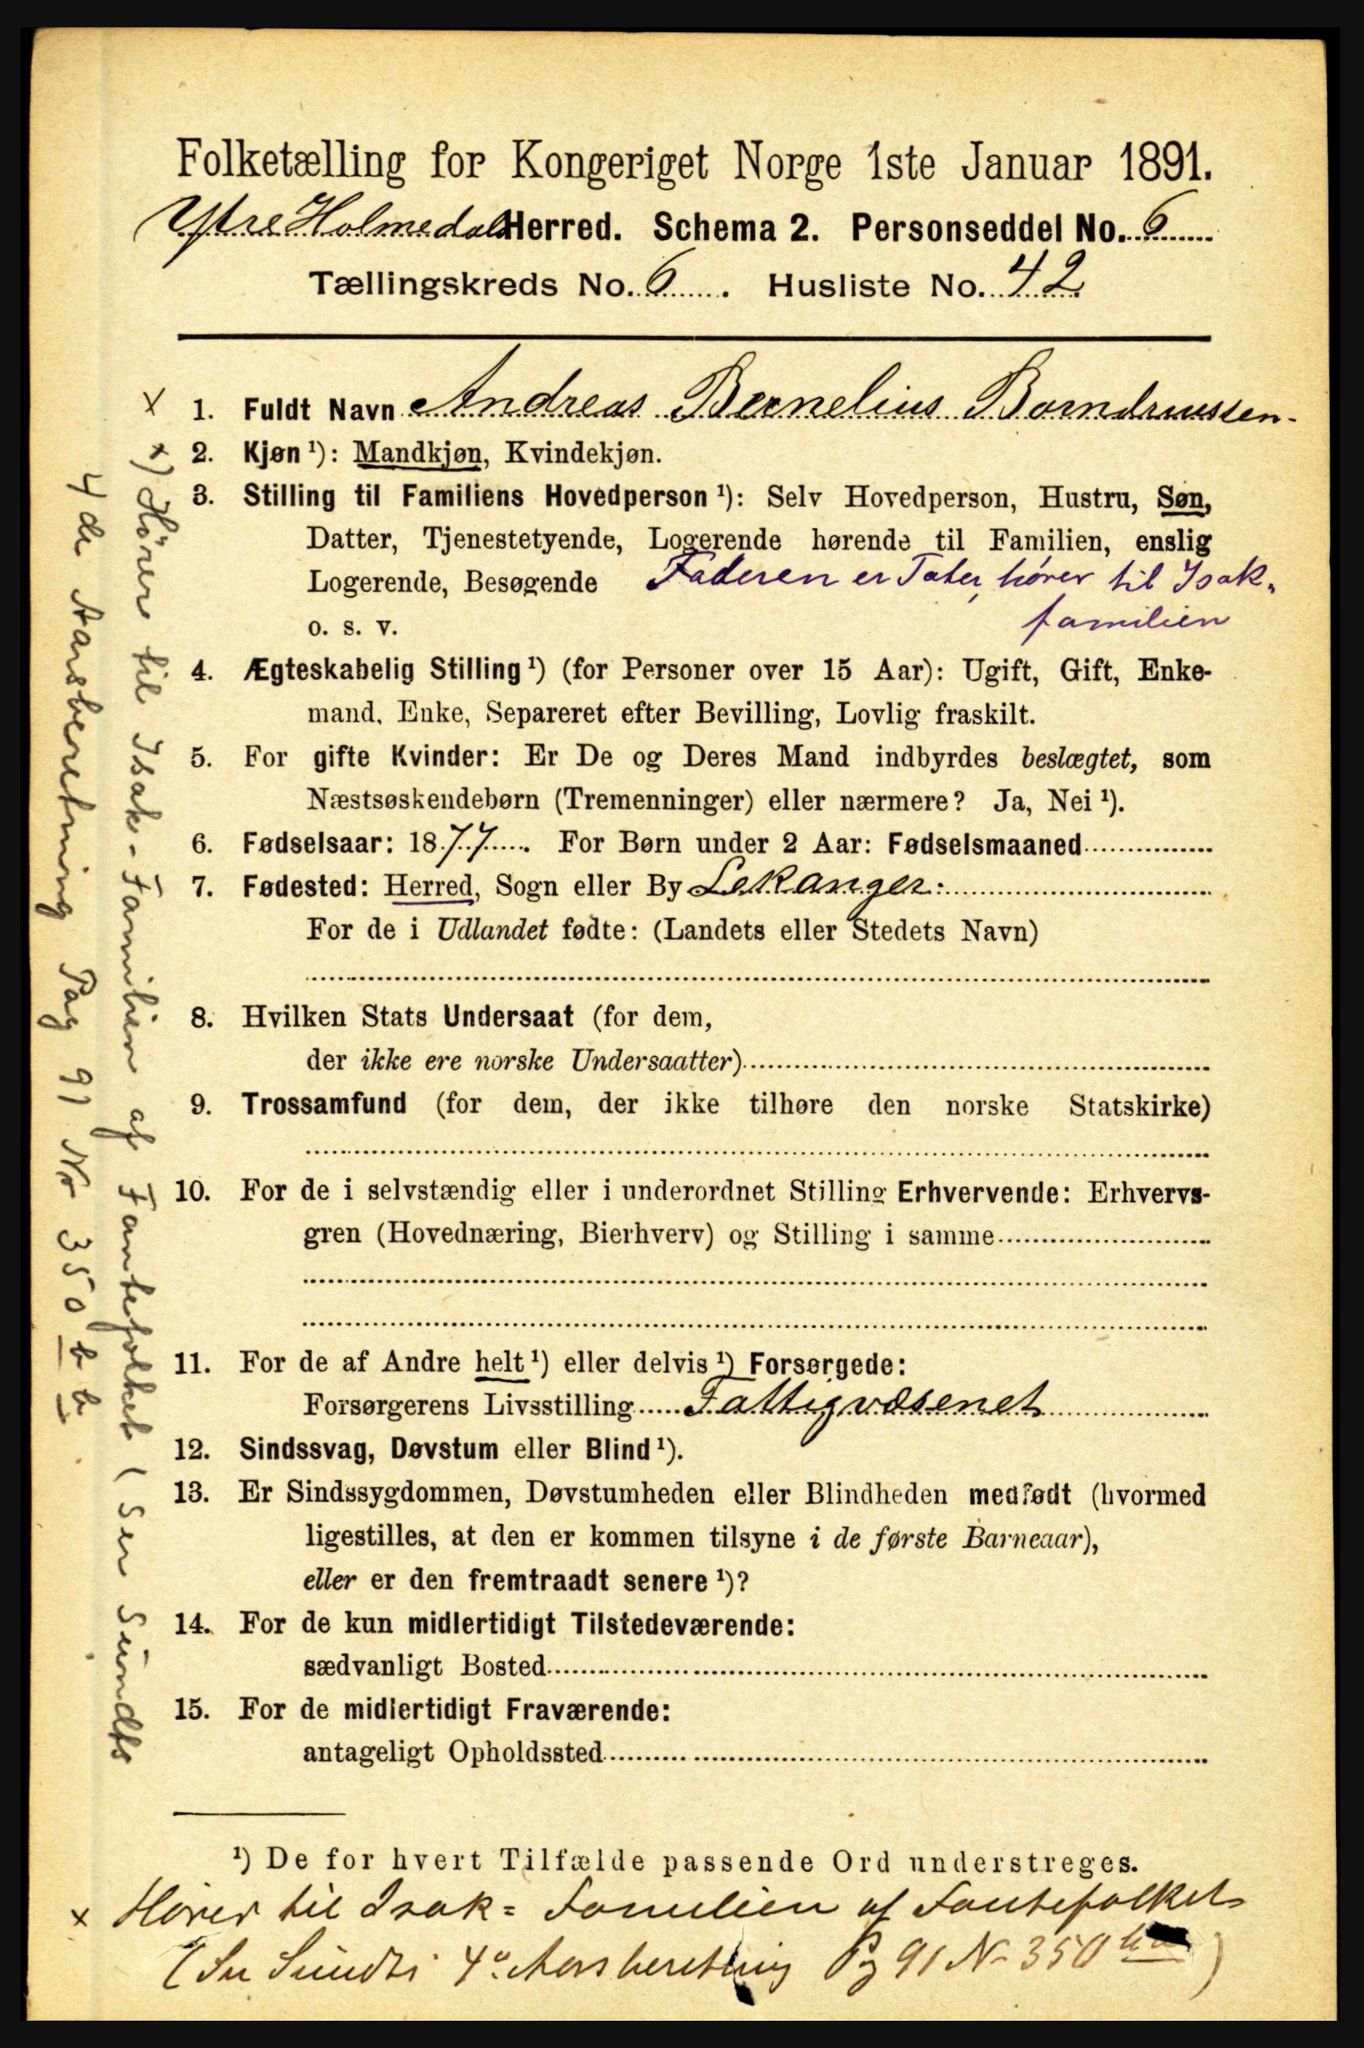 Folketælling for Kongeriget Norge 1ste Januar 1891.
Ytre Holmedals Herred. Schema 2. Personseddel No. 6
Tællingskreds No. 6. Husliste No. 42
x 1. Fuldt Navn Andreas Bernelius
2. Kjøn ¹): Mandkjøn, Kvindekjøn.
3. Stilling til Familiens Hovedperson ¹): Selv Hovedperson, Hustru, Søn,
Datter, Tjenestetyende, Logerende hørende til Familien, enslig
Logerende, Besøgende Faderen er Tater, hører til Isak-
o. s. v. familien
4. Ægteskabelig Stilling ¹) (for Personer over 15 Aar): Ugift, Gift, Enke-
mand, Enke, Separeret efter Bevilling, Lovlig fraskilt.
5. For gifte Kvinder: Er De og Deres Mand indbyrdes beslægtet, som
Næstsøskendebørn (Tremenninger) eller nærmere? Ja, Nei ¹).
6. Fødselsaar: 1877. For Børn under 2 Aar: Fødselsmaaned
7. Fødested: Herred, Sogn eller By Lekanger.
For de i Udlandet fødte: (Landets eller Stedets Navn)
8. Hvilken Stats Undersaat (for dem,
der ikke ere norske Undersaatter)
9. Trossamfund (for dem, der ikke tilhøre den norske Statskirke)
10. For de i selvstændig eller i underordnet Stilling Erhvervende: Erhvervs-
gren (Hovednæring, Bierhverv) og Stilling i samme
11. For de af Andre helt ¹) eller delvis ¹) Forsørgede:
Forsørgerens Livsstilling Fattigvæsenet
12. Sindssvag, Døvstum eller Blind ¹).
13. Er Sindssygdommen, Døvstumheden eller Blindheden medfødt (hvormed
ligestilles, at den er kommen tilsyne i de første Barneaar),
eller er den fremtraadt senere ¹)?
14. For de kun midlertidigt Tilstedeværende:
sædvanligt Bosted
15. For de midlertidigt Fraværende:
antageligt Opholdssted
¹) De for hvert Tilfælde passende Ord understreges.
x Hører til Isak= Familien af Fantefolket
(Se Sundts 4º Aarsberetning Pg 91 N- 350 )
x) Hører til Isak-Familien af Fantefolket (Se Sundts
4de Aarsberetning Pag 91 Nr 350 b b.